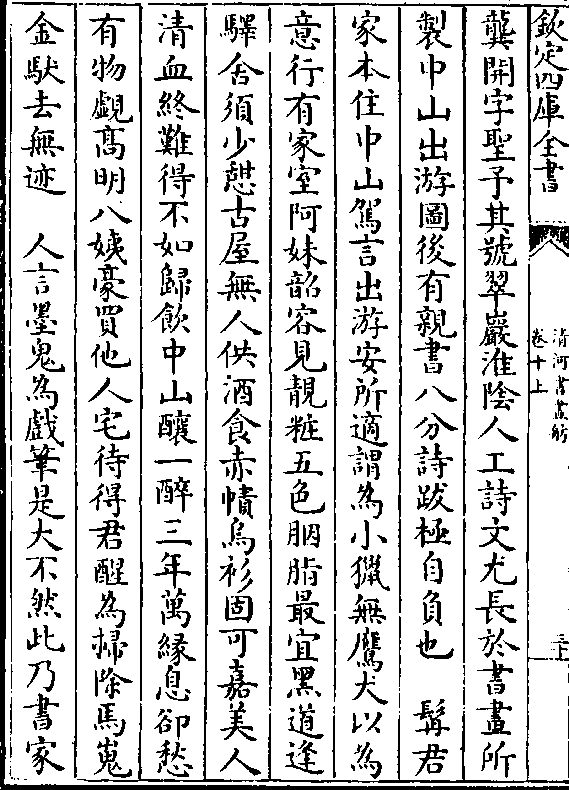 欽定四庫全書
清河書畫舫
卷十上
三十
龔開字聖予其號翠巖淮陰人工詩文尤長於書畫所
製中山出游圖後有親書八分詩跋極自負也　髯君
家本住中山駕言出游安所適謂為小獵無鷹犬以為
意行有家室阿妹韶容見靚粧五色胭脂最宜黑道逢
驛舍須少憇古屋無人供酒食赤幘烏衫固可嘉美人
清血終難得不如歸飲中山釀一醉三年萬緣息卻愁
有物覷髙明八姨豪買他人宅待得君醒為掃除馬嵬
金馱去無迹　人言墨鬼為戲筆是大不然此乃書家